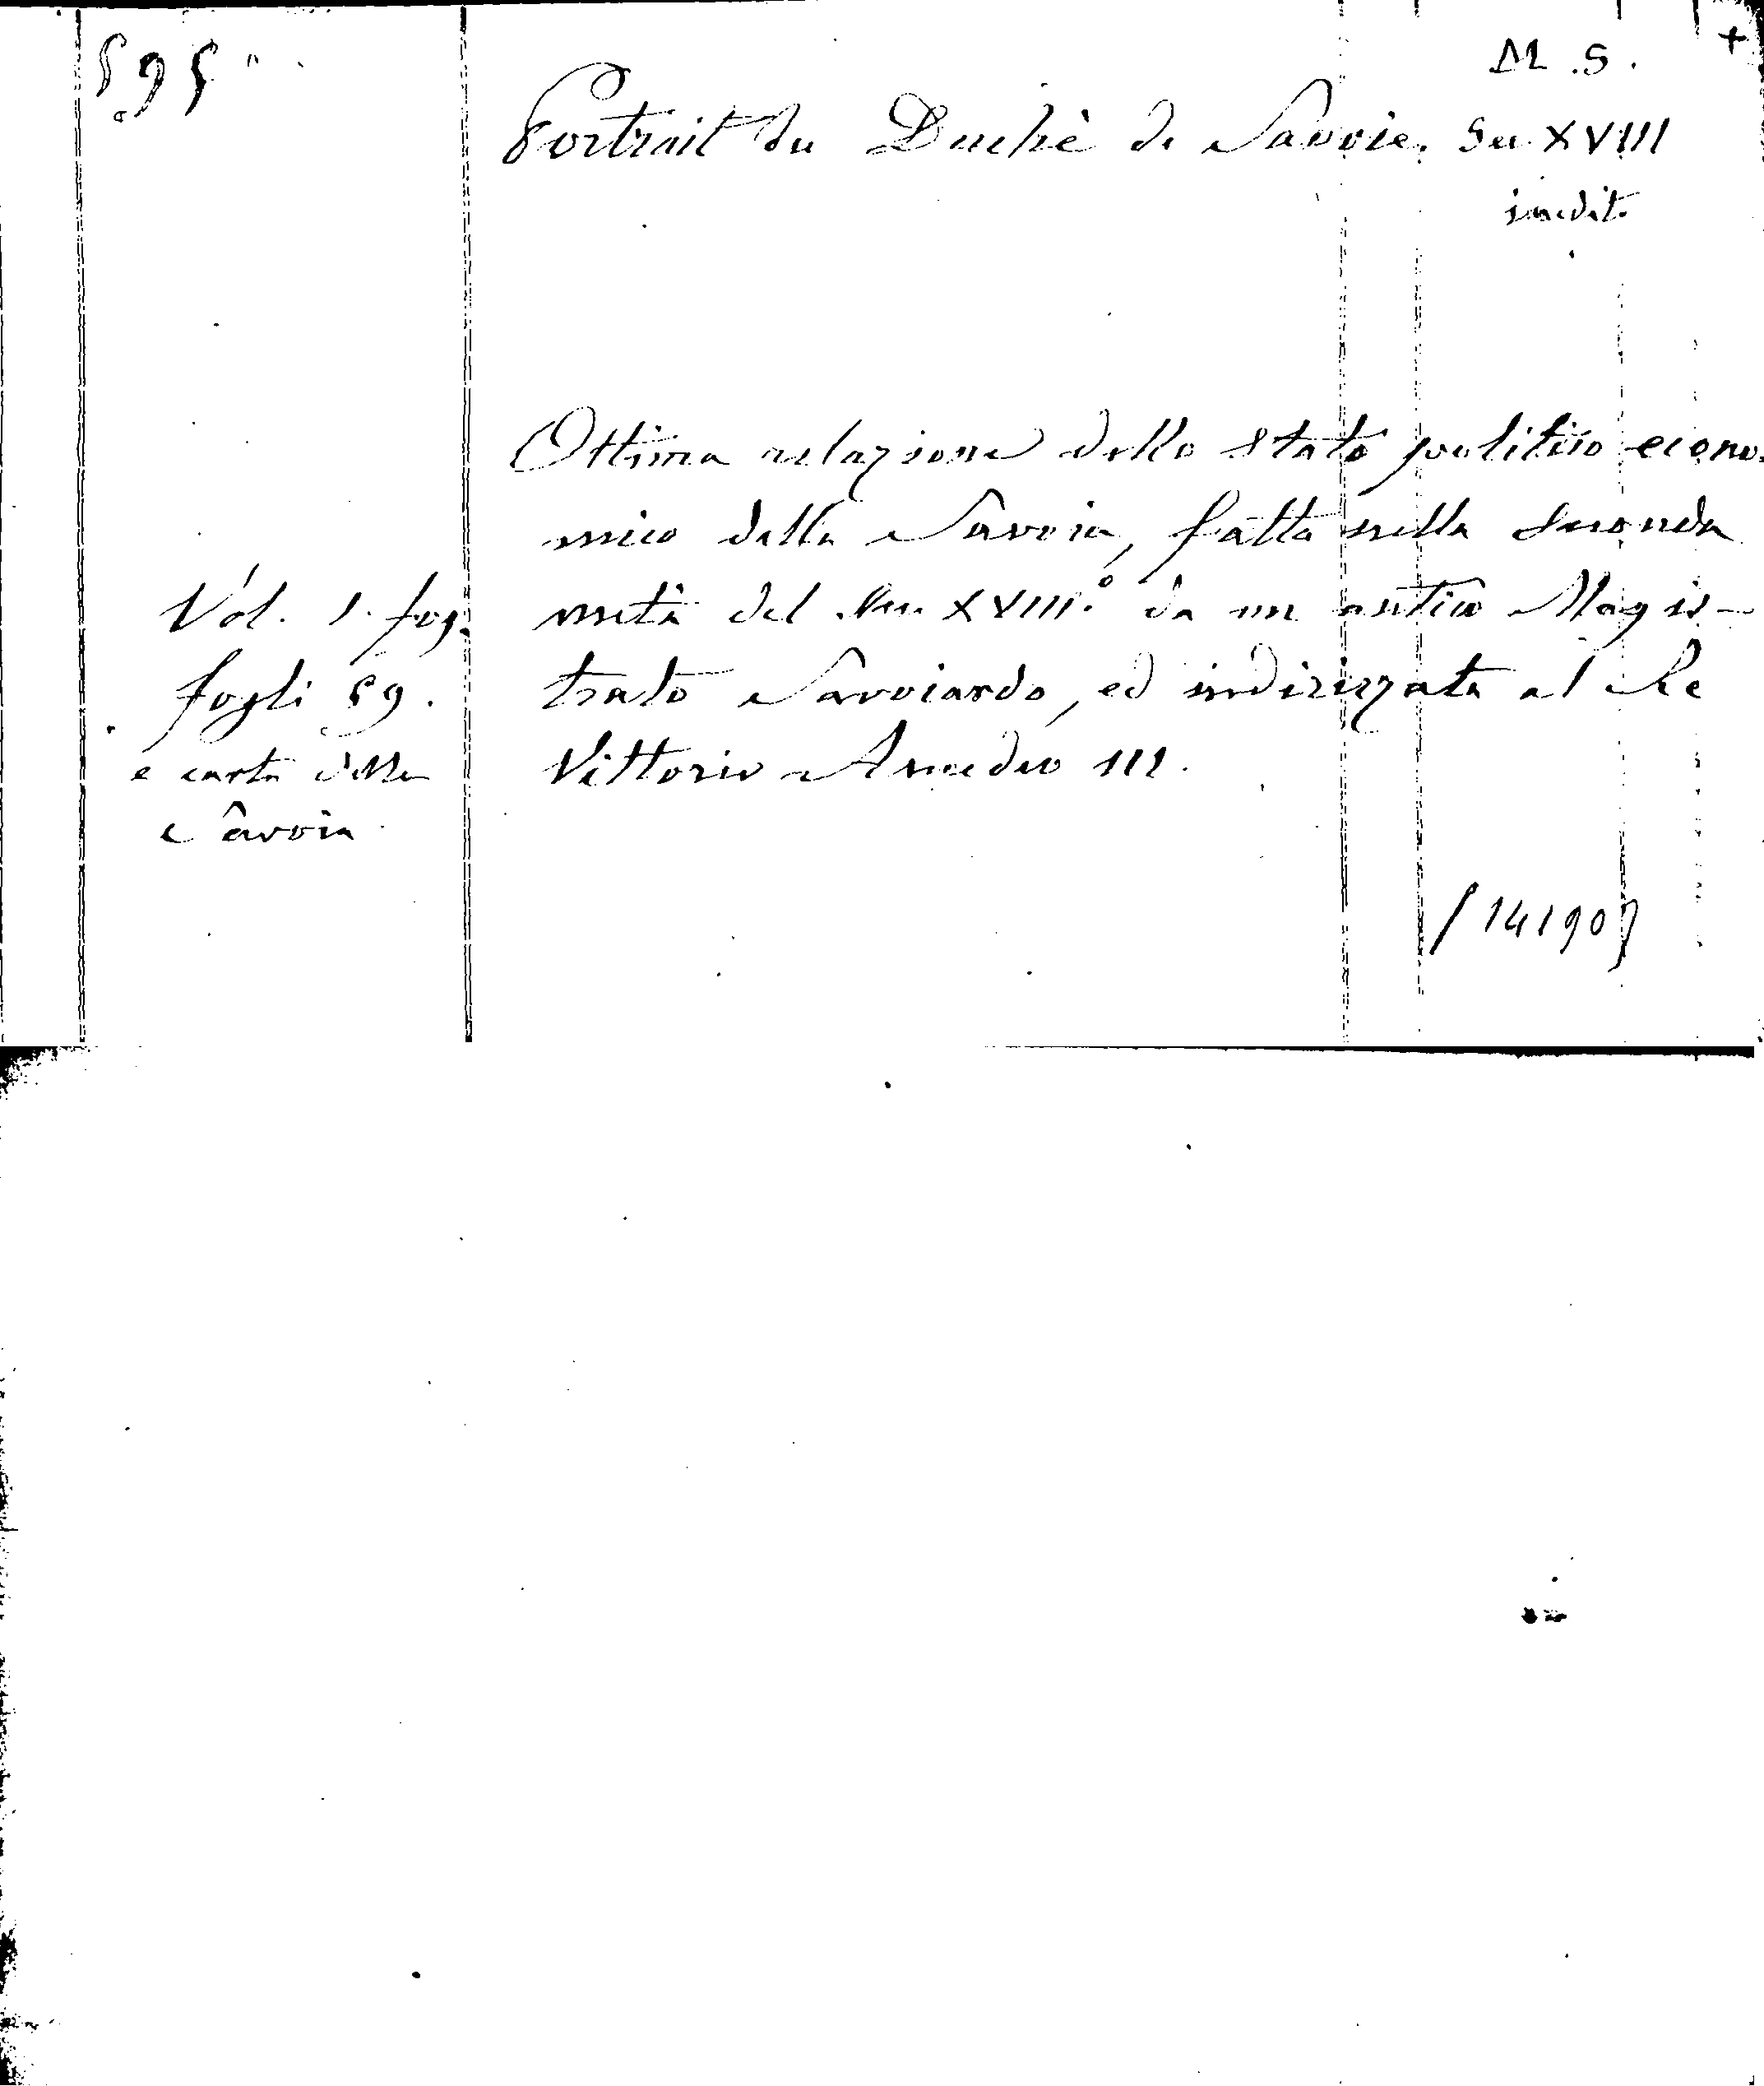 595
M.S. +
Portrait du Duchè de Savoie. Sec XVIII
inedit.
Ottima relazione dello Stato politico econo-
mico della Savoia, fatta nella seconda
Vol. 1. fog. metà del Sec. XVIII.° da un antico Magis-
fogli 59. trato Savoiardo, ed indirizzata al Re
e carta della Vittorio Amedeo III.
Savoia
141907